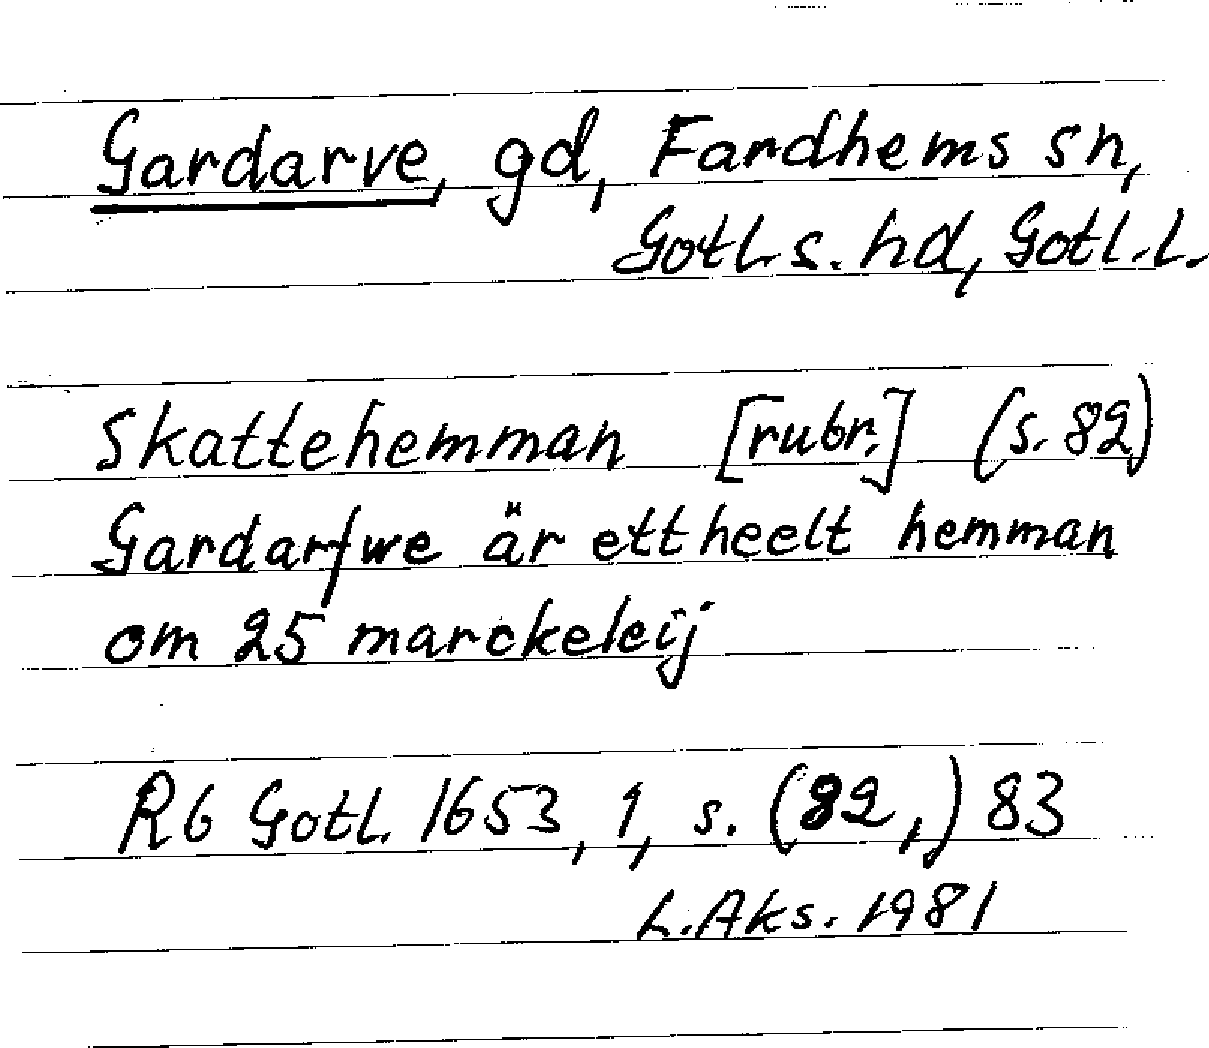 Gardarve, gd, Fardhems sn,
Gotl. s. hd, Gotl. L.
Skattehemman [rubr.] (s. 82)
Gardarfwe är ett heelt hemman
om 25 marckeleij
Rb Gotl. 1653, 1, s. (82,) 83
L. Aks. 1981